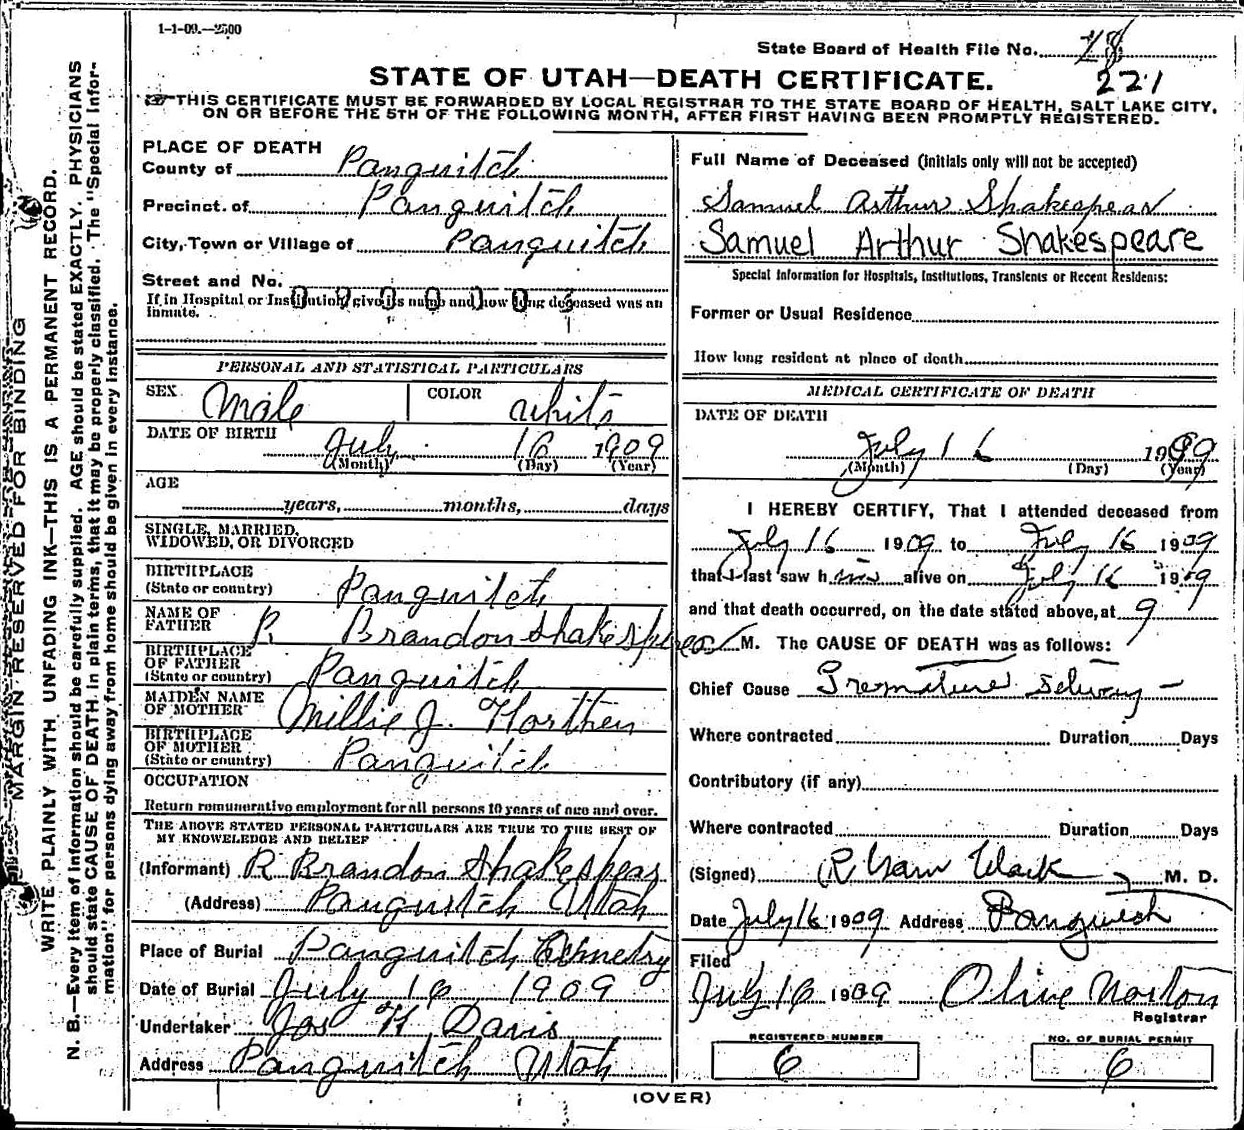 1-1-09.—2500
State Board of Health File No. 78
221
STATE OF UTAH—DEATH CERTIFICATE.
THIS CERTIFICATE MUST BE FORWARDED BY LOCAL REGISTRAR TO THE STATE BOARD OF HEALTH, SALT LAKE CITY,
ON OR BEFORE THE 5TH OF THE FOLLOWING MONTH, AFTER FIRST HAVING BEEN PROMPTLY REGISTERED.
MARGIN RESERVED FOR BINDING
WRITE PLAINLY WITH UNFADING INK—THIS IS A PERMANENT RECORD.
N. B.—Every item of information should be carefully supplied. AGE should be stated EXACTLY. PHYSICIANS
should state CAUSE OF DEATH in plain terms, that it may be properly classified. The "Special Infor-
mation" for persons dying away from home should be given in every instance.
PLACE OF DEATH
County of Panguitch
Precinct of Panguitch
City, Town or Village of Panguitch
Street and No.
If in Hospital or Institution, give its name and how long deceased was an
inmate.
PERSONAL AND STATISTICAL PARTICULARS
SEX Male COLOR White
DATE OF BIRTH July 16 1909
(Month) (Day) (Year)
AGE
years, months, days
SINGLE, MARRIED,
WIDOWED, OR DIVORCED
BIRTHPLACE
(State or country) Panguitch
NAME OF
FATHER R Brandon Shakespear
BIRTHPLACE
OF FATHER
(State or country) Panguitch
MAIDEN NAME
OF MOTHER Millie J. Horthen
BIRTHPLACE
OF MOTHER
(State or country) Panguitch
OCCUPATION
Return remunerative employment for all persons 10 years of age and over.
THE ABOVE STATED PERSONAL PARTICULARS ARE TRUE TO THE BEST OF
MY KNOWELEDGE AND BELIEF
(Informant) R Brandon Shakespear
(Address) Panguitch Utah
Place of Burial Panguitch Cemetry
Date of Burial July 16 1909
Undertaker Jos H Davis
Address Panguitch Utah
Full Name of Deceased (initials only will not be accepted)
Samuel Arthur Shakespear
Samuel Arthur Shakespeare
Special Information for Hospitals, Institutions, Transients or Recent Residents:
Former or Usual Residence
How long resident at place of death
MEDICAL CERTIFICATE OF DEATH
DATE OF DEATH
July 16 1909
(Month) (Day) (Year)
I HEREBY CERTIFY, That I attended deceased from
July 16 1909 to July 16 1909
that I last saw him alive on July 16 1909
and that death occurred, on the date stated above, at 9
M. The CAUSE OF DEATH was as follows:
Chief Cause Premature
Where contracted Duration Days
Contributory (if any)
Where contracted Duration Days
(Signed) R Clark M. D.
Date July 16 1909 Address Panguitch
Filed
July 16 1909 Olive Norton
Registrar
REGISTERED NUMBER NO. OF BURIAL PERMIT
6 6
(OVER)